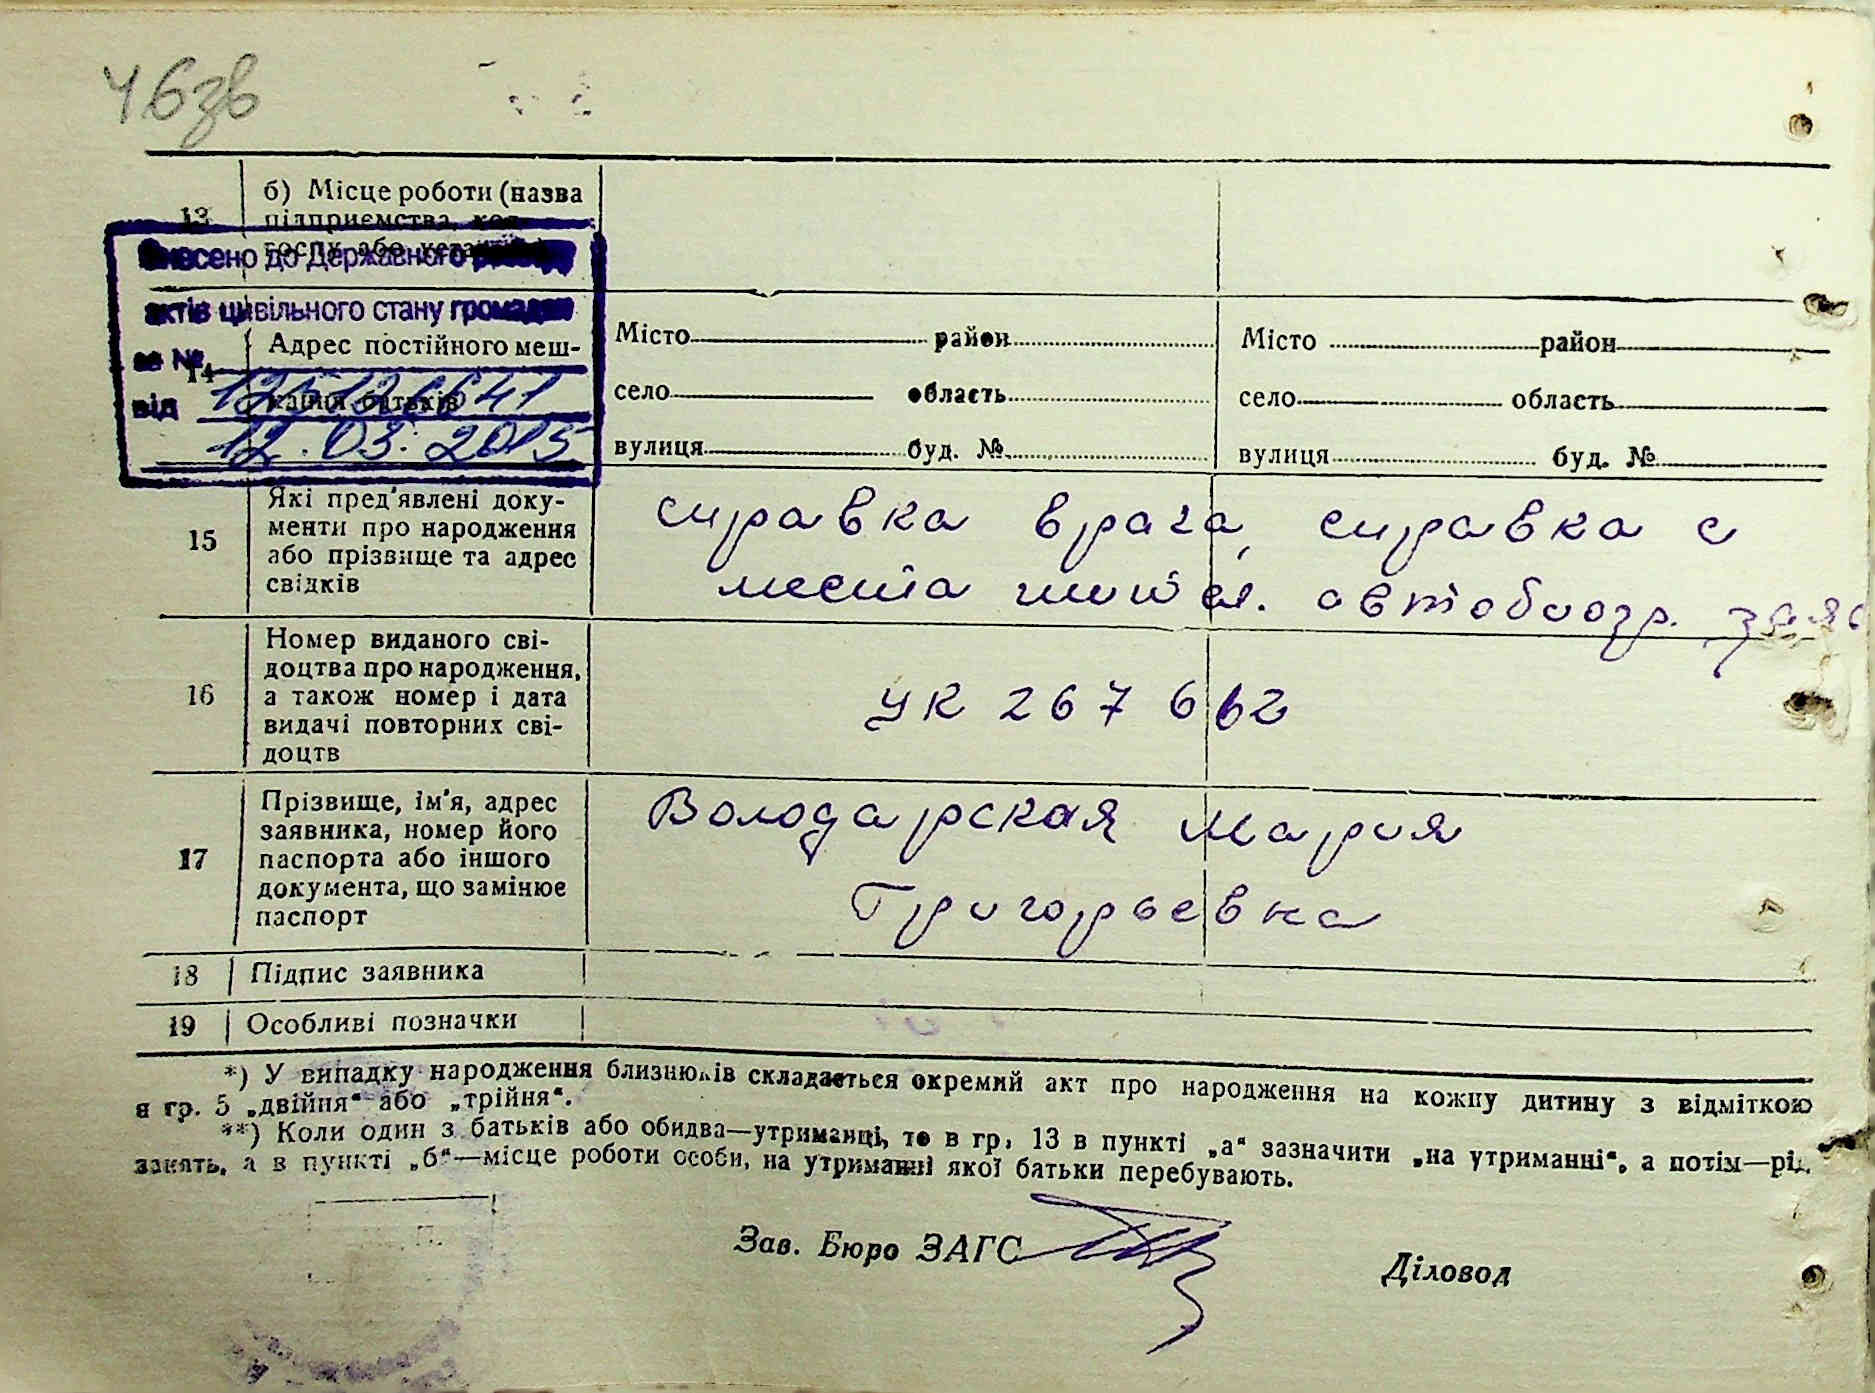 46зв
13
б) Місце роботи (назва
підприємства, кол-
госпу або установи)
Внесено до Державного реєстру
актів цивільного стану громадян
за №
від
12.03.2015
14
Адрес постійного меш-
кання батьків
Місто район
село область
вулиця буд. №
Місто район
село область
вулиця буд. №
15
Які пред'явлені доку-
менти про народження
або прізвище та адрес
свідків
справка врача, справка с
места жит ел. автобиогр. заяв
16
Номер виданого сві-
доцтва про народження,
а також номер і дата
видачі повторних сві-
доцтв
УК 267662
17
Прізвище, ім'я, адрес
заявника, номер його
паспорта або іншого
документа, що замінює
паспорт
Володарская Мария
Григорьевна
18 Підпис заявника
19 Особливі позначки
*) У випадку народження близнюків складається окремий акт про народження на кожну дитину з відміткою
в гр. 5 „двійня“ або „трійня“.
**) Коли один з батьків або обидва—утриманці, то в гр. 13 в пункті „а“ зазначити „на утриманні“, а потім—рід
занять, а в пункті „б“—місце роботи особи, на утриманні якої батьки перебувають.
Зав. Бюро ЗАГС
Діловод